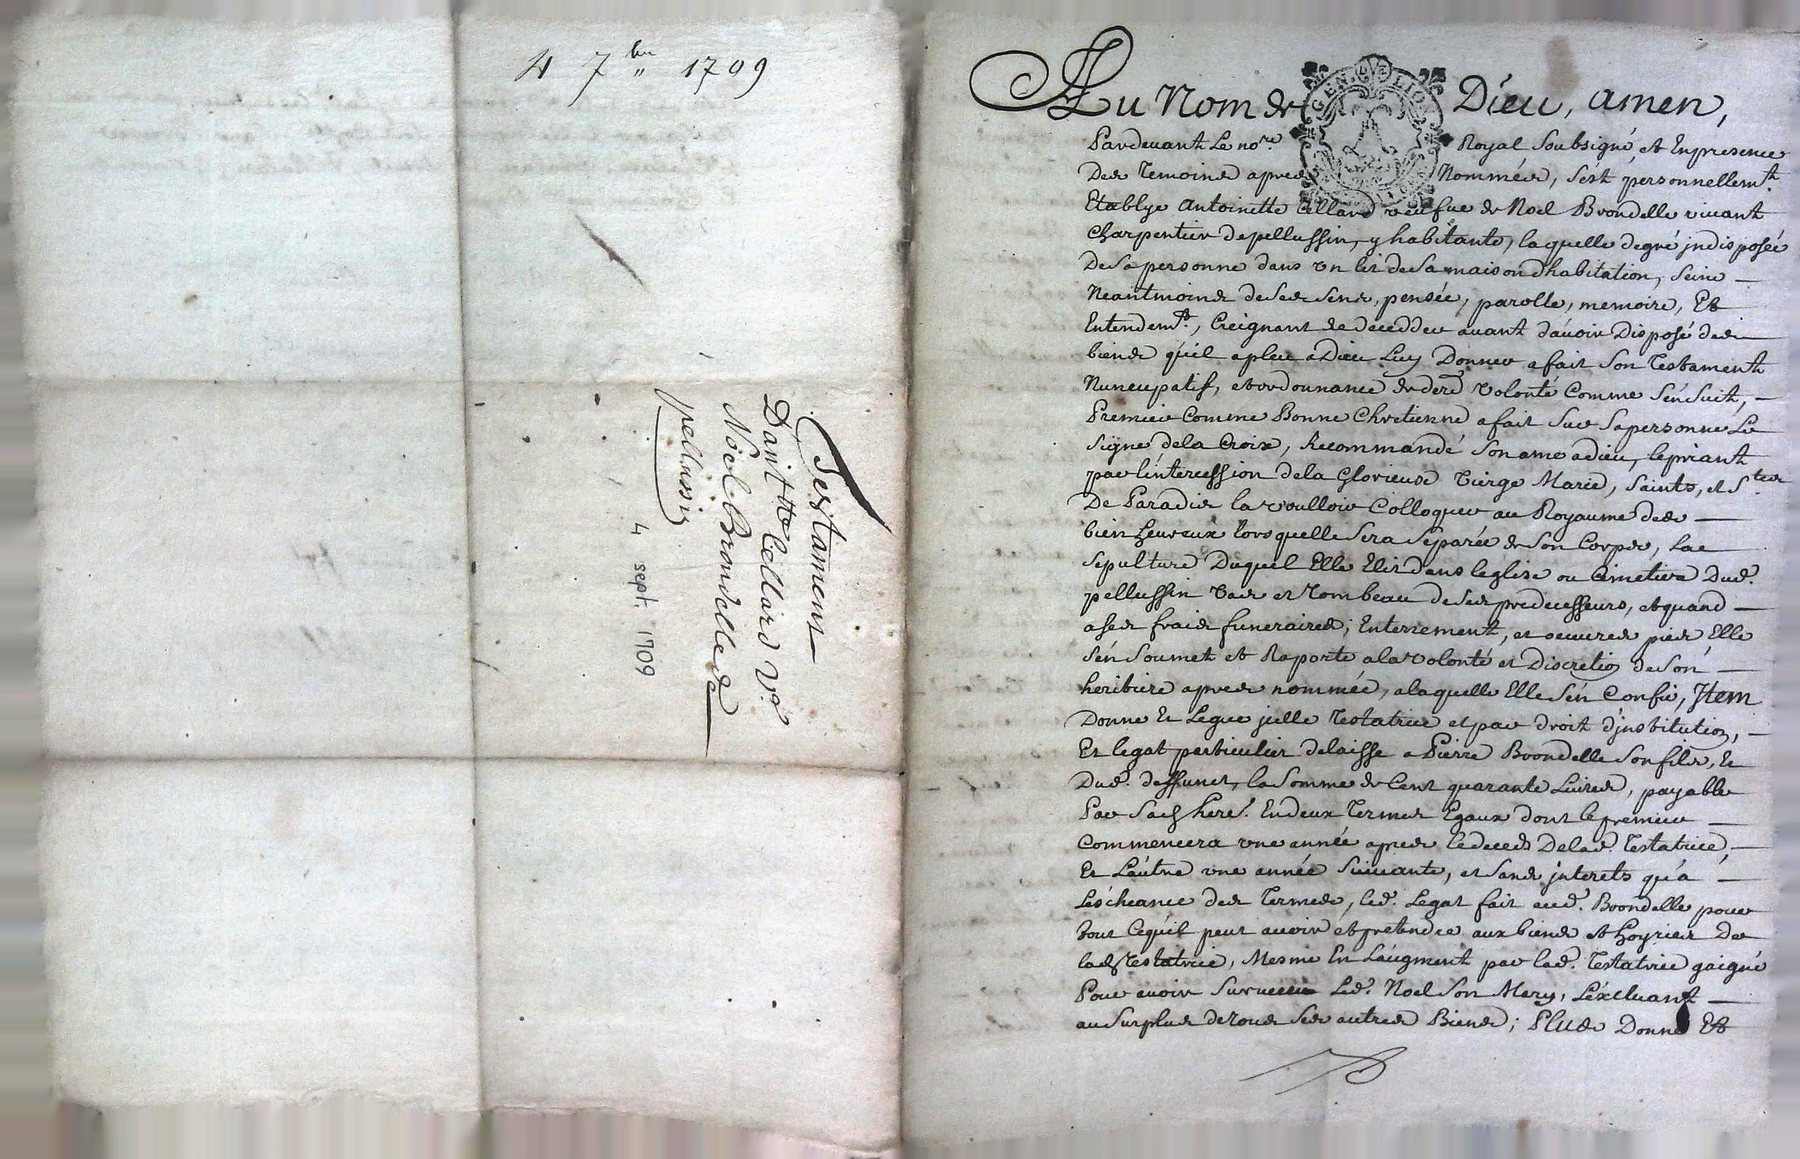 4 7bre 1709
Testament
D'ant.tte Cellard V.e
Noel Brondelle de
pellussin
4 sept. 1709
Au Nom de Dieu, amen,
GEN. LION
Pardevant Le no.re Royal Soubsigné, et En presence
Des Temoins apres Nommés, s'est personnellem.t
Etablye Antoinette Cellard veufue de Noel Brondelle vivant
Charpentier de pellussin, y habitante, laquelle de gré jndisposée
De sa personne dans vn lit de sa maison d'habitation, seine
Neantmoins de ses sens, pensée, parolle, memoire, Et
Entendem.t, Creignant de decedder auant d'auoir Disposé des
biens qu'il a pleu a Dieu Luy Donner a fait son Testament
Nuncupatif, et ordonnance de der.e volonté Comme s'en suit,
Premier Comme Bonne Chretienne a fait sur sa personne Le
signe de la Croix, Recommandé son ame a dieu, le priant
par l'intercession de la Glorieuse vierge Marie, saints, et s.tes
De Paradis la voulloir Colloquer au Royaume des
bien heureux lors quelle sera separée de son Corps, La
sepulture Duquel Elle Elit dans leglise ou Cimetiere Dud.
pellussin et Tombeau de ses predecesseurs, et quand
a ses frais funeraires, Enterrement, et oeuures pies Elle
s'en soumet et Raporte a la volonté et Discretion de son
heritiere apres nommée, a laquelle Elle s'en Confie, Jtem
Donne Et Legue jcelle Testatrice et par droit d'jnstitution,
Et legat particulier delaisse a Pierre Brondelle son fils, Et
Dud. deffunct, la somme de Cent quarante Liures, payable
Par sad. here. En deux Termes Egaux dont le premier
Commencera vne année apres le deceds De lad. Testatrice,
Et L'autre vne année suiuante, et sans jnterets qu'a
L'escheance des Termes, led. Legat fait aud. Brondelle pour
tout Ce qu'il peut auoir et pretendre aux biens et hoyries De
lad. Testatrice, Mesme En L'augment par lad. Testatrice gaigné
Pour auoir suruecu Led. Noel son Mary, L'excluant
au surplus de tous ses autres Biens; Plus Donne Et